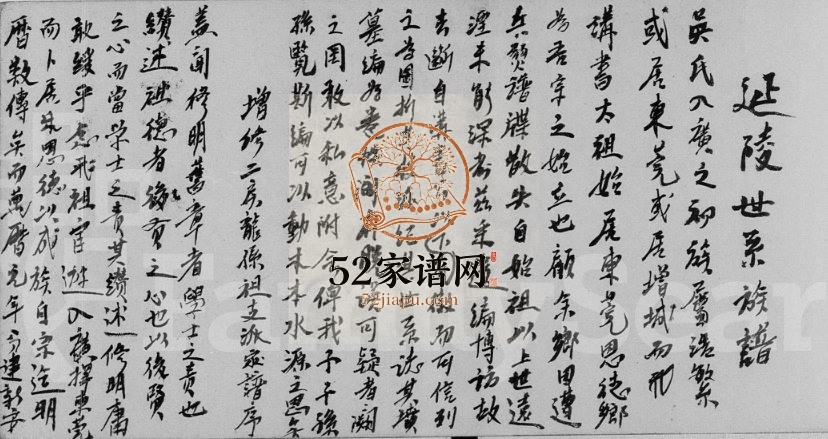 延陵世系族譜
吳氏入廣之初族屬浩繁
或居東莞或居增城而刑
講書太祖始居東莞恩德鄉
為吾宗之始立也顧余鄉因遭
兵燹譜牒散失自始祖以上世遠
湮未能深考茲集編博訪故
老斷自徵而可信列
之為圖析系誌其墳
墓編為卷間可疑者闕
之罔敢以私意附會俾我子子孫
孫覽斯編可以動木本水源之思矣
增修二房龍孫祖支派家譜序
蓋聞修明舊章者學士之責也
纘述祖德者後賢之心也以後賢
之心而當學士之責其纘述修明庸
敢緩乎念刑祖宦遊入廣擇東莞
而卜居焉恩德以成族自宗迄明
曆數傳矣而萬曆元年分建新安
52家谱网
52jiapu.com